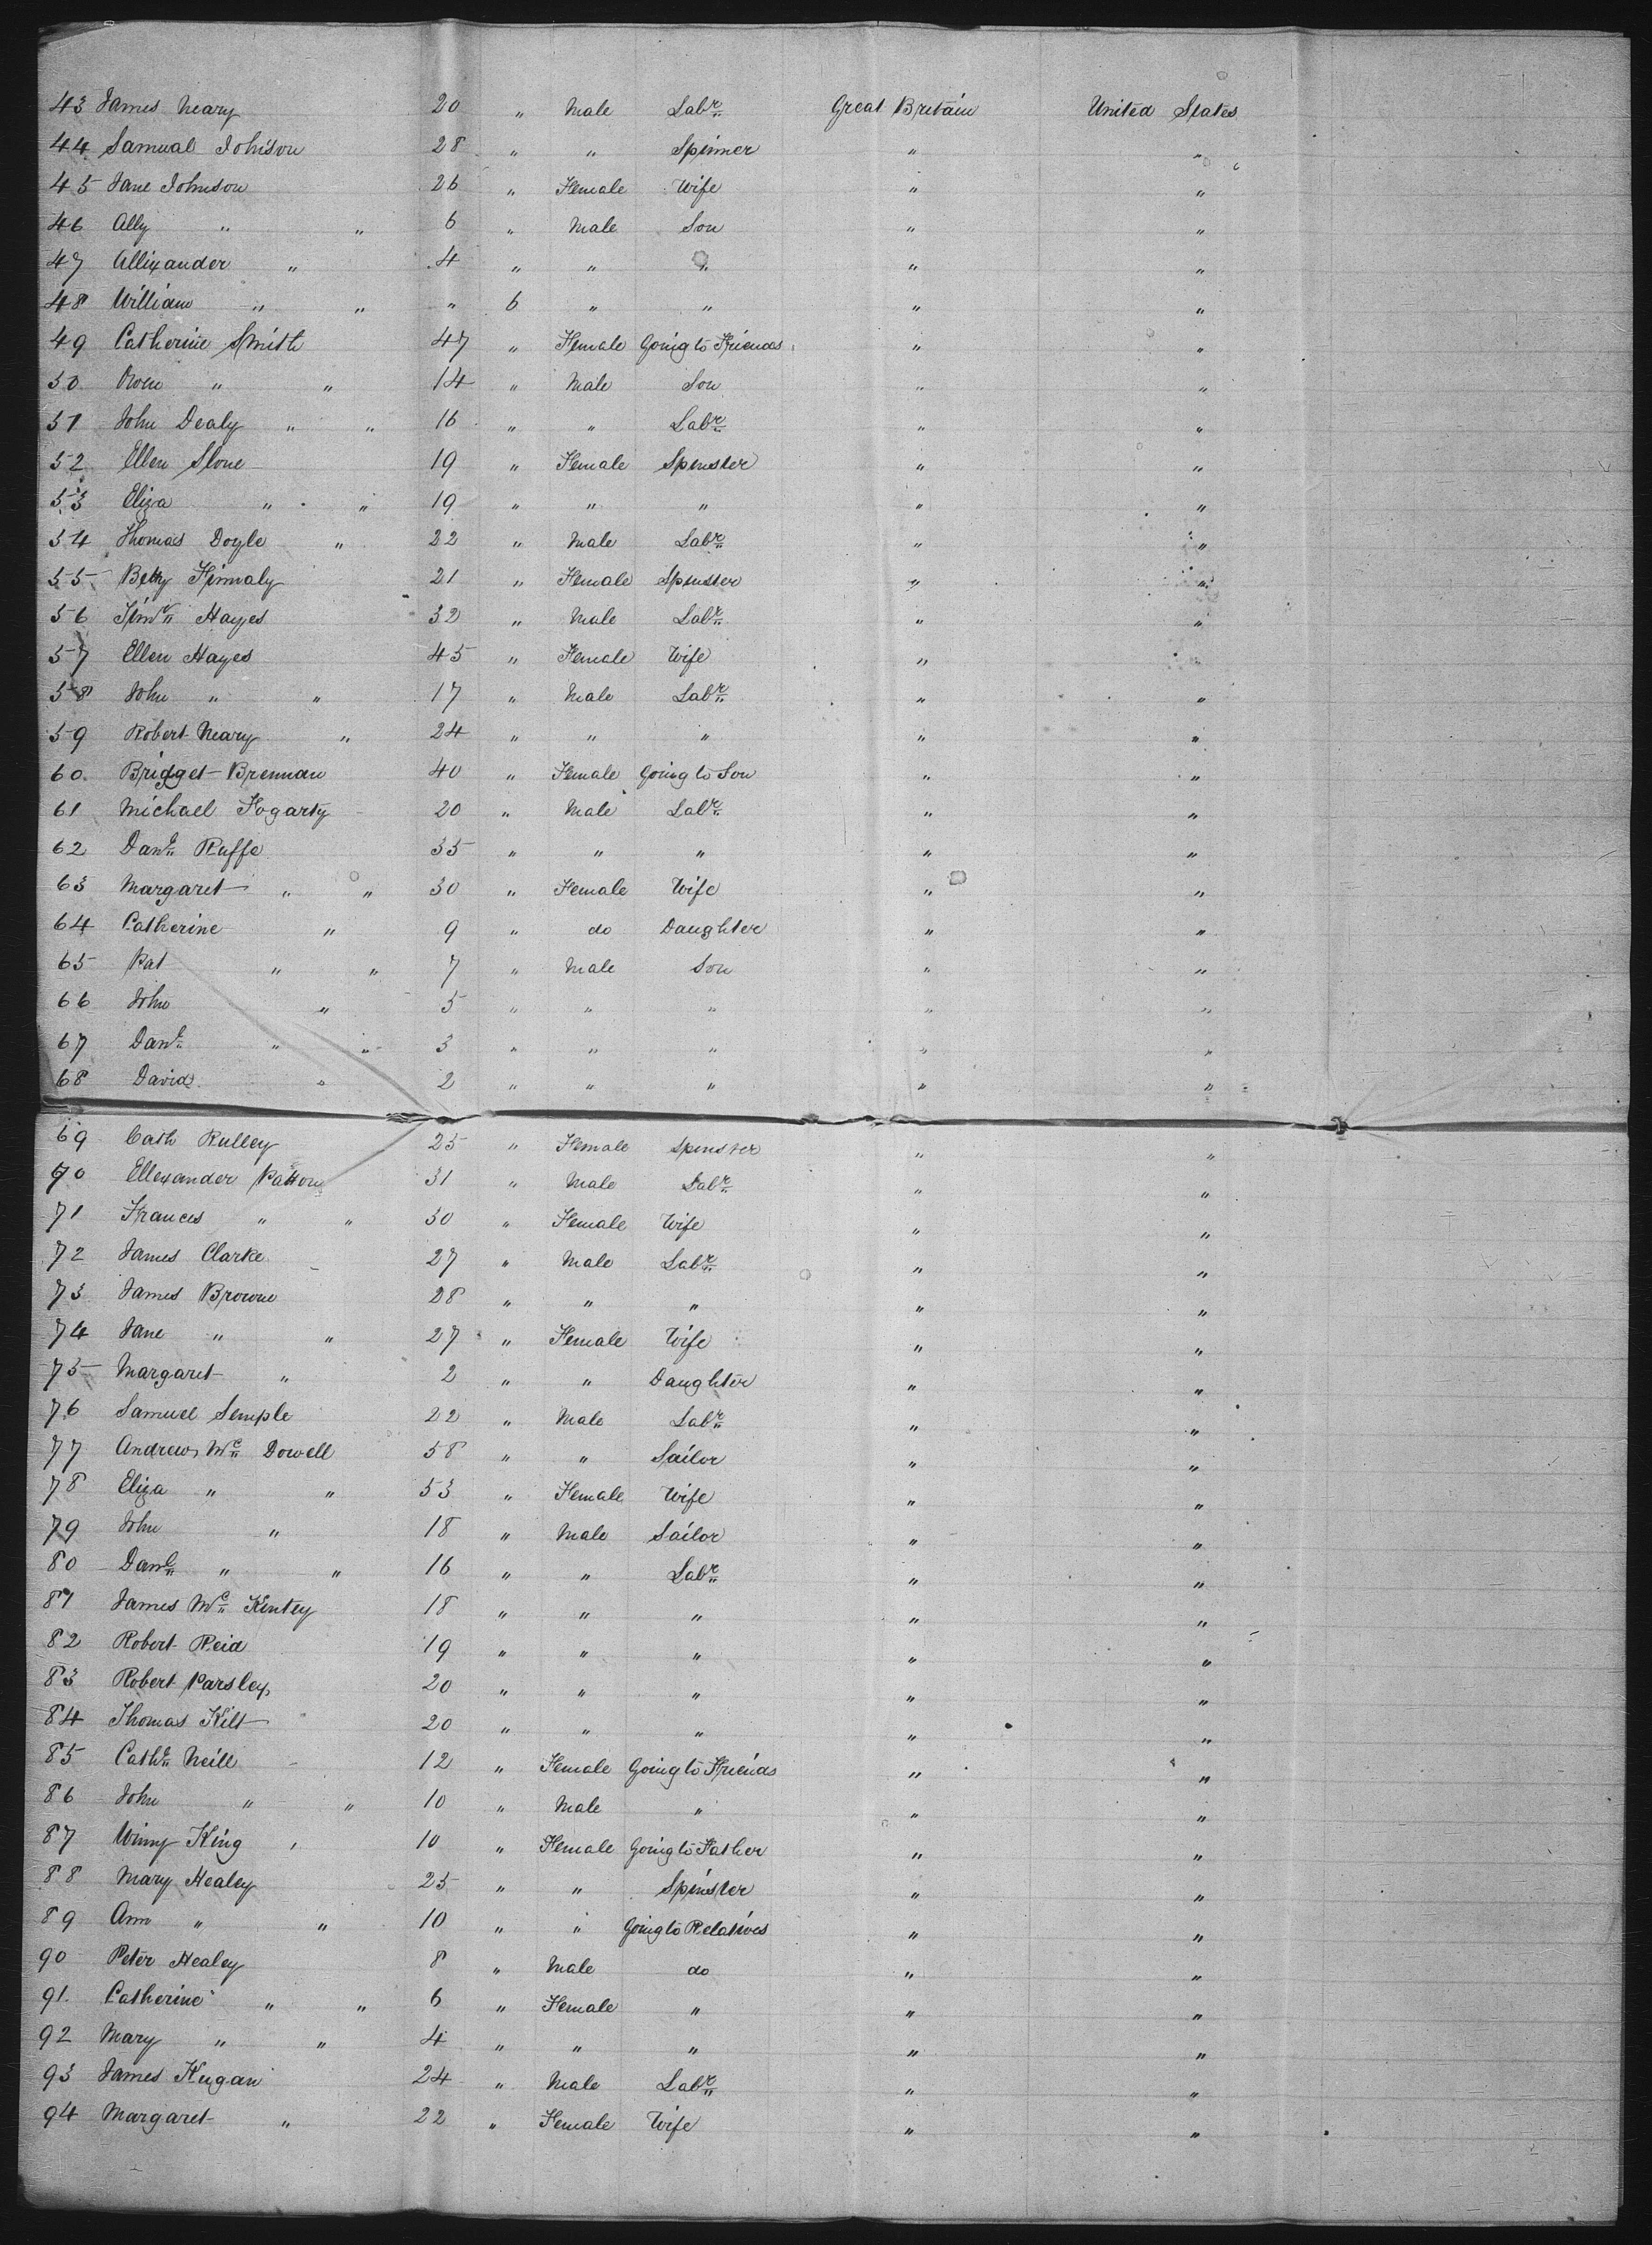 43 James Neary 20 " Male Labr Great Britain United States
44 Samual Johnson 28 " " Spinner " "
45 Jane Johnson 26 " Female Wife " "
46 Ally " " 6 " Male Son " "
47 Allixander " 4 " " " " "
48 William " " " 6 " " " "
49 Catherine Smith 47 " Female Going to Friends " "
50 Owen " " 14 " Male Son " "
51 John Dealy " " 16 " " Labr " "
52 Ellen Slone 19 " Female Spinster " "
53 Eliza " " 19 " " " " "
54 Thomas Doyle " 22 " Male Labr " "
55 Betty Finnaly 21 " Female Spinster " "
56 Hayes 32 " Male Labr " "
57 Ellen Hayes 45 " Female Wife " "
58 John " " 17 " Male Labr " "
59 Robert Neary " 24 " " " " "
60 Bridget Brennan 40 " Female Going to Son " "
61 Michael Fogarty 20 " Male Labr " "
62 Danl Ruffe 35 " " " " "
63 Margaret " " 30 " Female Wife " "
64 Catherine " 9 " do Daughter " "
65 Pat " " 7 " Male Son " "
66 John " 5 " " " " "
67 Danl " " 3 " " " " "
68 David " 2 " " " " "
69 Cath Rulley 25 " Female Spinster " "
70 Ellexander Patton 31 " Male Labr " "
71 Frances " " 30 " Female Wife " "
72 James Clarke 27 " Male Labr " "
73 James Browne 28 " " " " "
74 Jane " " 27 " Female Wife " "
75 Margaret " 2 " " Daughter " "
76 Samuel Semple 22 " Male Labr " "
77 Andrew Mc Dowell 58 " " Sailor " "
78 Eliza " " 53 " Female Wife " "
79 John " 18 " Male Sailor " "
80 Danl " " 16 " " Labr " "
81 James Mc Kintey 18 " " " " "
82 Robert Reid 19 " " " " "
83 Robert Parsley 20 " " " " "
84 Thomas Kilt 20 " " " " "
85 Cathe Neill 12 " Female Going to Friends " "
86 John " " 10 " Male " " "
87 Winny King 10 " Female Going to Father " "
88 Mary Healey 25 " " Spinster " "
89 Ann " " 10 " " Going to Relatives " "
90 Peter Healey 8 " Male do " "
91 Catherine " " 6 " Female " " "
92 Mary " " 4 " " " " "
93 James Kugan 24 " Male Labr " "
94 Margaret " 22 " Female Wife " "